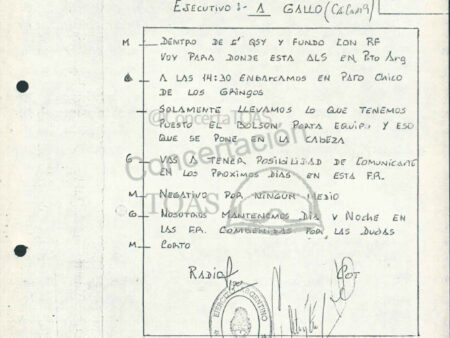 EJECUTIVO :- A GALLO (CALCULA9)
M — DENTRO DE 5' QSY Y FUNDO CON RF
VOY PARA DONDE ESTA ALS EN PTO ARG
G — A LAS 14:30 EMBARCAMOS EN PATO CHICO
DE LOS GRINGOS
— SOLAMENTE LLEVAMOS LO QUE TENEMOS
PUESTO EL BOLSON PORTA EQUIPO Y ESO
QUE SE PONE EN LA CABEZA
G — VAS A TENER POSIBILIDAD DE COMUNICARTE
EN LOS PROXIMOS DIAS EN ESTA FR.
M — NEGATIVO POR NINGUN MEDIO
G — NOSOTROS MANTENEMOS DIA Y NOCHE EN
LAS FR. COMBENIDAS POR LAS DUDAS
M — CORTO
RADIO
COT
EJERCITO ARGENTINO
@ConcertaTOAS
Concertación
TOAS